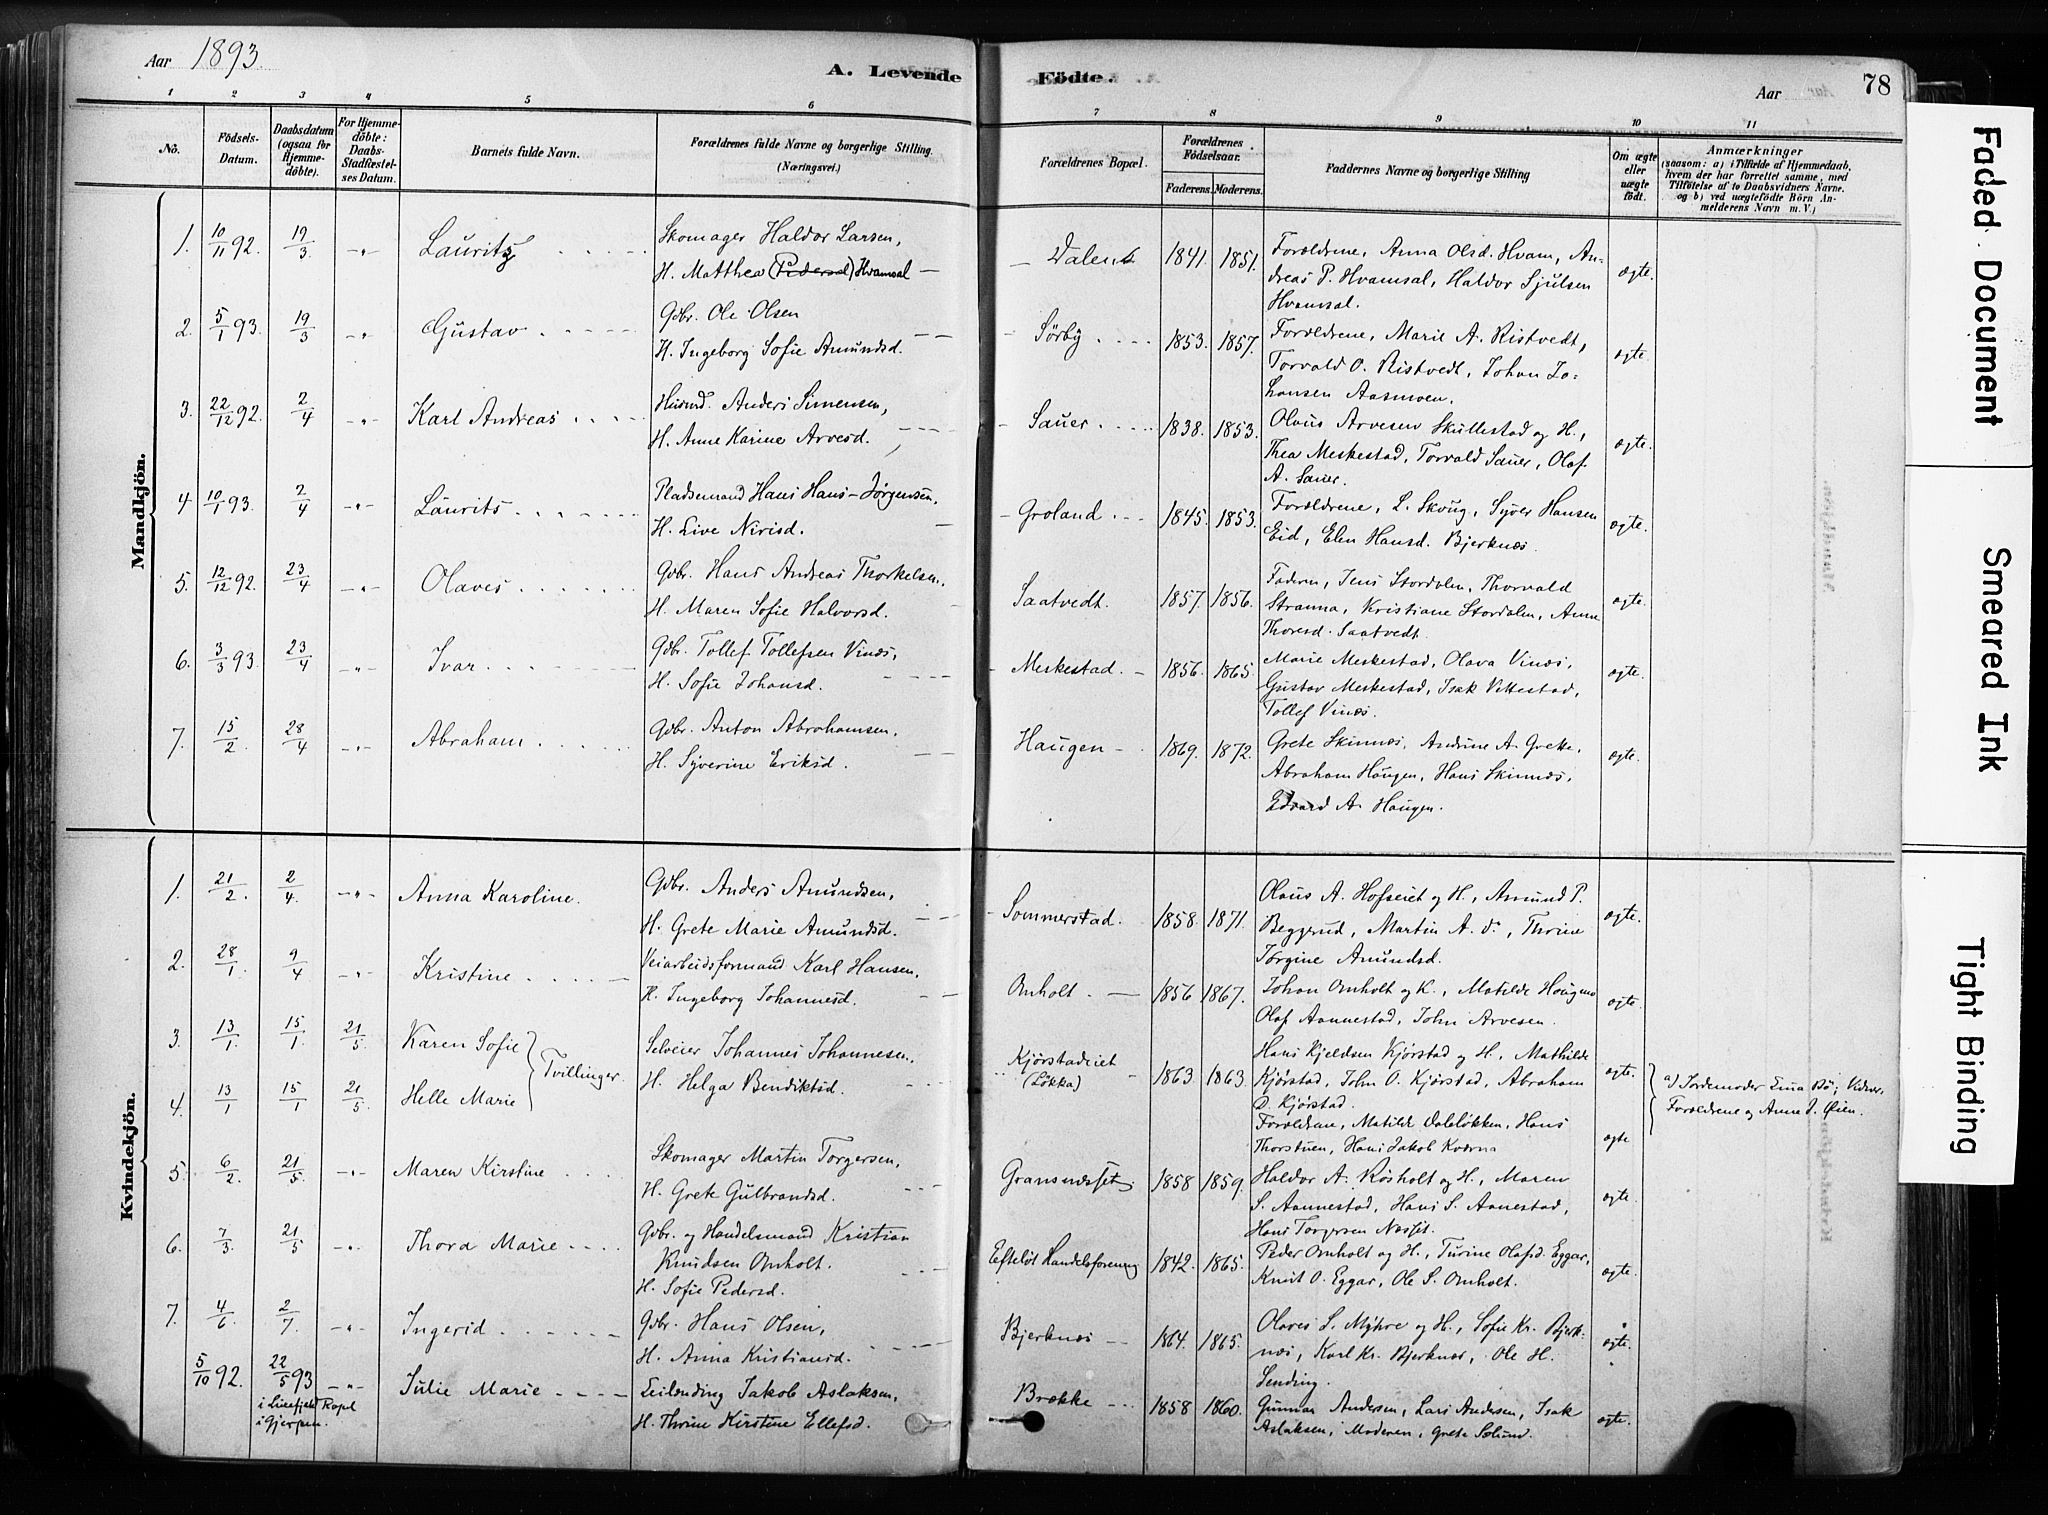 Aar 1893.
A. Levende Födte.
Aar
78
1 2 3 4 5 6 7 8 9 10 11
No.
Födsels-Datum.
Daabsdatum (ogsaa for Hjemmedöbte).
For Hjemmedöbte: Daabs-Stadfæstelses Datum.
Barnets fulde Navn.
Forældrenes fulde Navne og borgerlige Stilling. (Næringsvei.)
Forældrenes Bopæl.
Forældrenes Födselsaar.
Faderens. Moderens.
Faddernes Navne og borgerlige Stilling
Om ægte eller uægte födt.
Anmærkninger
(saasom: a) i Tilfælde af Hjemmedaab, hvem der har forrettet samme, med Tilføielse af to Daabsvidners Navne. og b) ved uægtefödte Börn Anmelderens Navn m. V.)
Mandkjön.
1. 10/11 92. 19/3 -"- Lauritz
Skomager Haldor Larsen,
H. Matthea (Pedersd) Hvamsal
Dalen 1841. 1851.
Forældrene, Anna Olsd. Hvam, An-
dreas P. Hvamsal, Haldor Sjulsen
Hvamsal.
ægte.
2. 5/1 93. 19/3 -"- Gustav
Gdbr. Ole Olsen
H. Ingeborg Sofie Amundsd.
Sørby 1853. 1857.
Forældrene, Marie A. Ristvedt,
Torvald O. Ristvedt, Johan Jo-
hansen Aasmoen.
ægte.
3. 22/12 92. 2/4 -"- Karl Andreas
Husmd. Anders Simensen,
H. Anne Karine Arvesd.
Sauer 1838. 1853.
Olaus Arvesen Skullestad og H.,
Thea Meskestad, Torvald Sauer, Olaf
A. Sauer.
ægte.
4 10/1 93. 2/4 -"- Laurits
Pladsemand Hans Hans-Jørgensen,
H. Live Nirisd.
Groland 1845. 1853.
Forældrene, L. Skoug, Syver Hansen
Eid, Elen Hansd. Bjerknæs.
ægte.
5. 12/12 92. 23/4 -"- Olaves
Gdbr. Hans Andreas Thorkelsen,
H. Maren Sofie Halvorsd.
Saatvedt. 1857. 1856.
Faderen, Jens Stordalen, Thorvald
Stranna, Kristiane Stordalen, Anne
Thoresd. Saatvedt.
ægte.
6. 3/3 93. 23/4 -"- Ivar
Gdbr. Tollef Tollefsen Vinæs,
H. Sofie Johansd.
Meskestad. 1856. 1865.
Marie Meskestad, Olava Vinæs,
Gustav Meskestad, Isak Vittestad,
Tollef Vinæs.
ægte.
7. 15/2 28/4 -"- Abraham
Gdbr. Anton Abrahamsen,
H. Syverine Eriksd.
Haugen 1869. 1872.
Grete Skinnæs, Andrine A. Grette,
Abraham Haugen, Hans Skinnæs,
Edvard A. Haugen.
ægte.
Kvindekjön.
1. 21/2 2/4 -"- Anna Karoline.
Gdbr. Anders Amundsen,
H. Grete Marie Amundsd.
Sommerstad. 1858. 1871.
Olaus A. Hofseiet og H., Amund P.
Beggerud, Martin A. do, Thrine
Jørgine Amundsd.
ægte.
2. 28/1 9/4 -"- Kristine
Veiarbeidsformand Karl Hansen,
H. Ingeborg Johannesd.
Omholt 1856 1867.
Johan Omholt og K., Matilde Haugmo
Olaf Aannestad, John Arvesen.
ægte.
3. 13/1 15/1 21/5 Karen Sofie
4. 13/1 15/1 21/5 Helle Marie
Tvillinger.
Selveier Johannes Johannesen,
H. Helga Bendiktsd.
Kjørstadeiet
(Løkka)
1863. 1863.
Hans Kjeldsen Kjørstad og H., Mathilde
Kjørstad, John O. Kjørstad, Abraham
D. Kjørstad.
ægte.
Forældrene, Matilde Daleløkken, Hans
Thorstuen, Hans Jakob Kværna
ægte
a) Jordemoder Ema Bø; Vidner:
Forældrene og Anne J. Øien.
5. 6/2 21/5 -"- Maren Kirstine
Skomager Martin Torgersen,
H. Grete Gulbrandsd.
Gransnæsset 1858 1859.
Haldor A. Røsholt og H., Maren
S. Aannestad, Hans S. Aanestad,
Hans Torgersen Næsset.
ægte.
6. 7/3 21/5 -"- Thora Marie
Gdbr. og Handelsmand Kristian
Knudsen Omholt.
H. Sofie Pedersd.
Efteløt Handelsforening 1842. 1865.
Peder Omholt og H., Turine Olafsd. Eggar,
Knut O. Eggar, Ole S. Omholt.
ægte.
7. 4/6 2/7 -"- Ingerid
Gdbr. Hans Olsen,
H. Anna Kristiansd.
Bjerknæs 1864. 1865.
Olaves S. Myhre og H., Sofie Kr. Bjerk-
næs, Karl Kr. Bjerknæs, Ole H.
Sending.
ægte.
5/10 92. 22/5 93 -"- Julie Marie
i Luefjeld Kapel
i Gjerpen.
Leilænding Jakob Aslaksen,
H. Thrine Kirstine Ellefsd.
Brække 1858 1860.
Gunnar Andersen, Lars Andersen, Isak
Aslaksen, Moderen, Grete Solund.
ægte.
Faded Document
Smeared Ink
Tight Binding